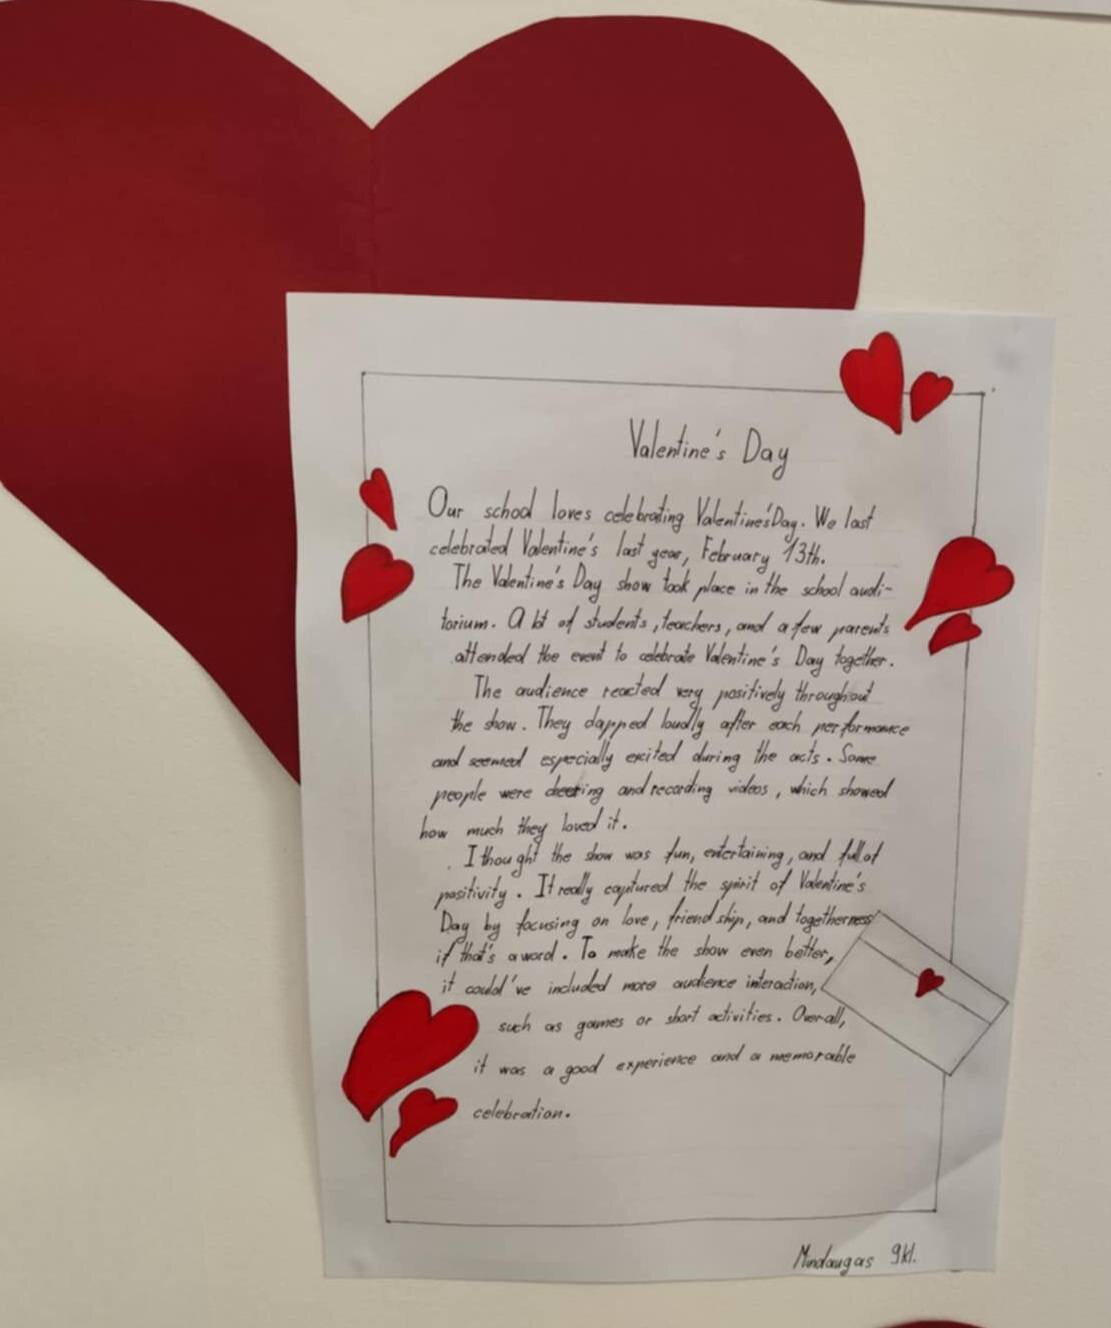 Valentine's Day
Our school loves celebrating Valentine'sDay. We last
celebrated Valentine's last year, February 13th.
The Valentine's Day show took place in the school audi-
torium. A lot of students, teachers, and a few parents
attended the event to celebrate Valentine's Day together.
The audience reacted very positively throughout
the show. They clapped loudly after each performance
and seemed especially excited during the acts. Some
people were cheering and recording videos, which showed
how much they loved it.
I thought the show was fun, entertaining, and full of
positivity. It really captured the spirit of Valentine's
Day by focusing on love, friendship, and togetherness
if that's a word. To make the show even better,
it could've included more audience interaction,
such as games or short activities. Overall,
it was a good experience and a memorable
celebration.
Mindaugas 9kl.